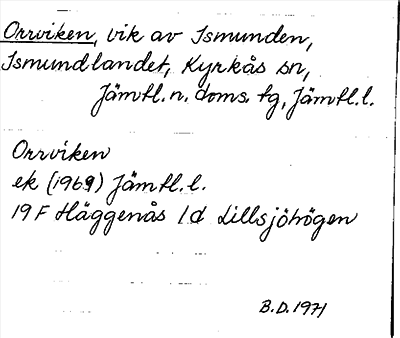 Orrviken, vik av Ismunden,
Ismundlandet, Kyrkås sn,
Jämtl. n. doms. tg, Jämtl. l.
Orrviken
ek (1969) Jämtl. l.
19 F Häggenås 1d Lillsjöhögen
B.D. 1971